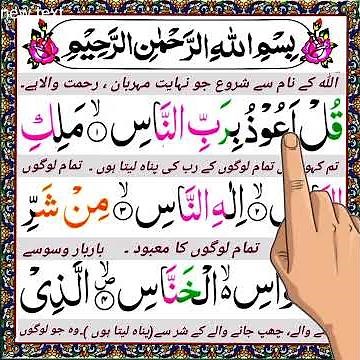 new text
بِسْمِ اللهِ الرَّحْمٰنِ الرَّحِيْمِ
اللہ کے نام سے شروع جو نہایت مہربان ، رحمت والا ہے۔
قُلْ اَعُوْذُ بِرَبِّ النَّاسِ ۙ﴿۱﴾ مَلِكِ
تم کہو تمام لوگوں کے رب کی پناہ لیتا ہوں ۔ تمام لوگوں
﴿۲﴾ اِلٰهِ النَّاسِ ۙ﴿۳﴾ مِنْ شَرِّ
تمام لوگوں کا معبود ۔ باربار وسوسے
الْخَنَّاسِ ۪ۙ﴿۴﴾ الَّذِیْ
والے، چھپ جانے والے کے شر سے (پناہ لیتا ہوں)۔ وہ جو لوگوں